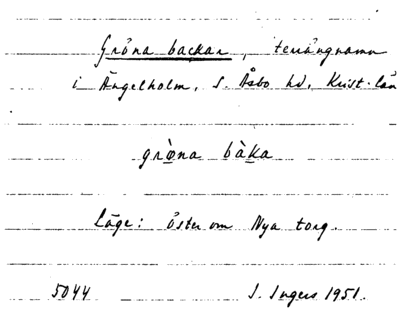 Gröna backar, terrängnamn
i Ängelholm, S. Åsbo hd, Krist. län
grö̀na bàka
Läge: öster om Nya torg.
5044 I. Ingers 1951.